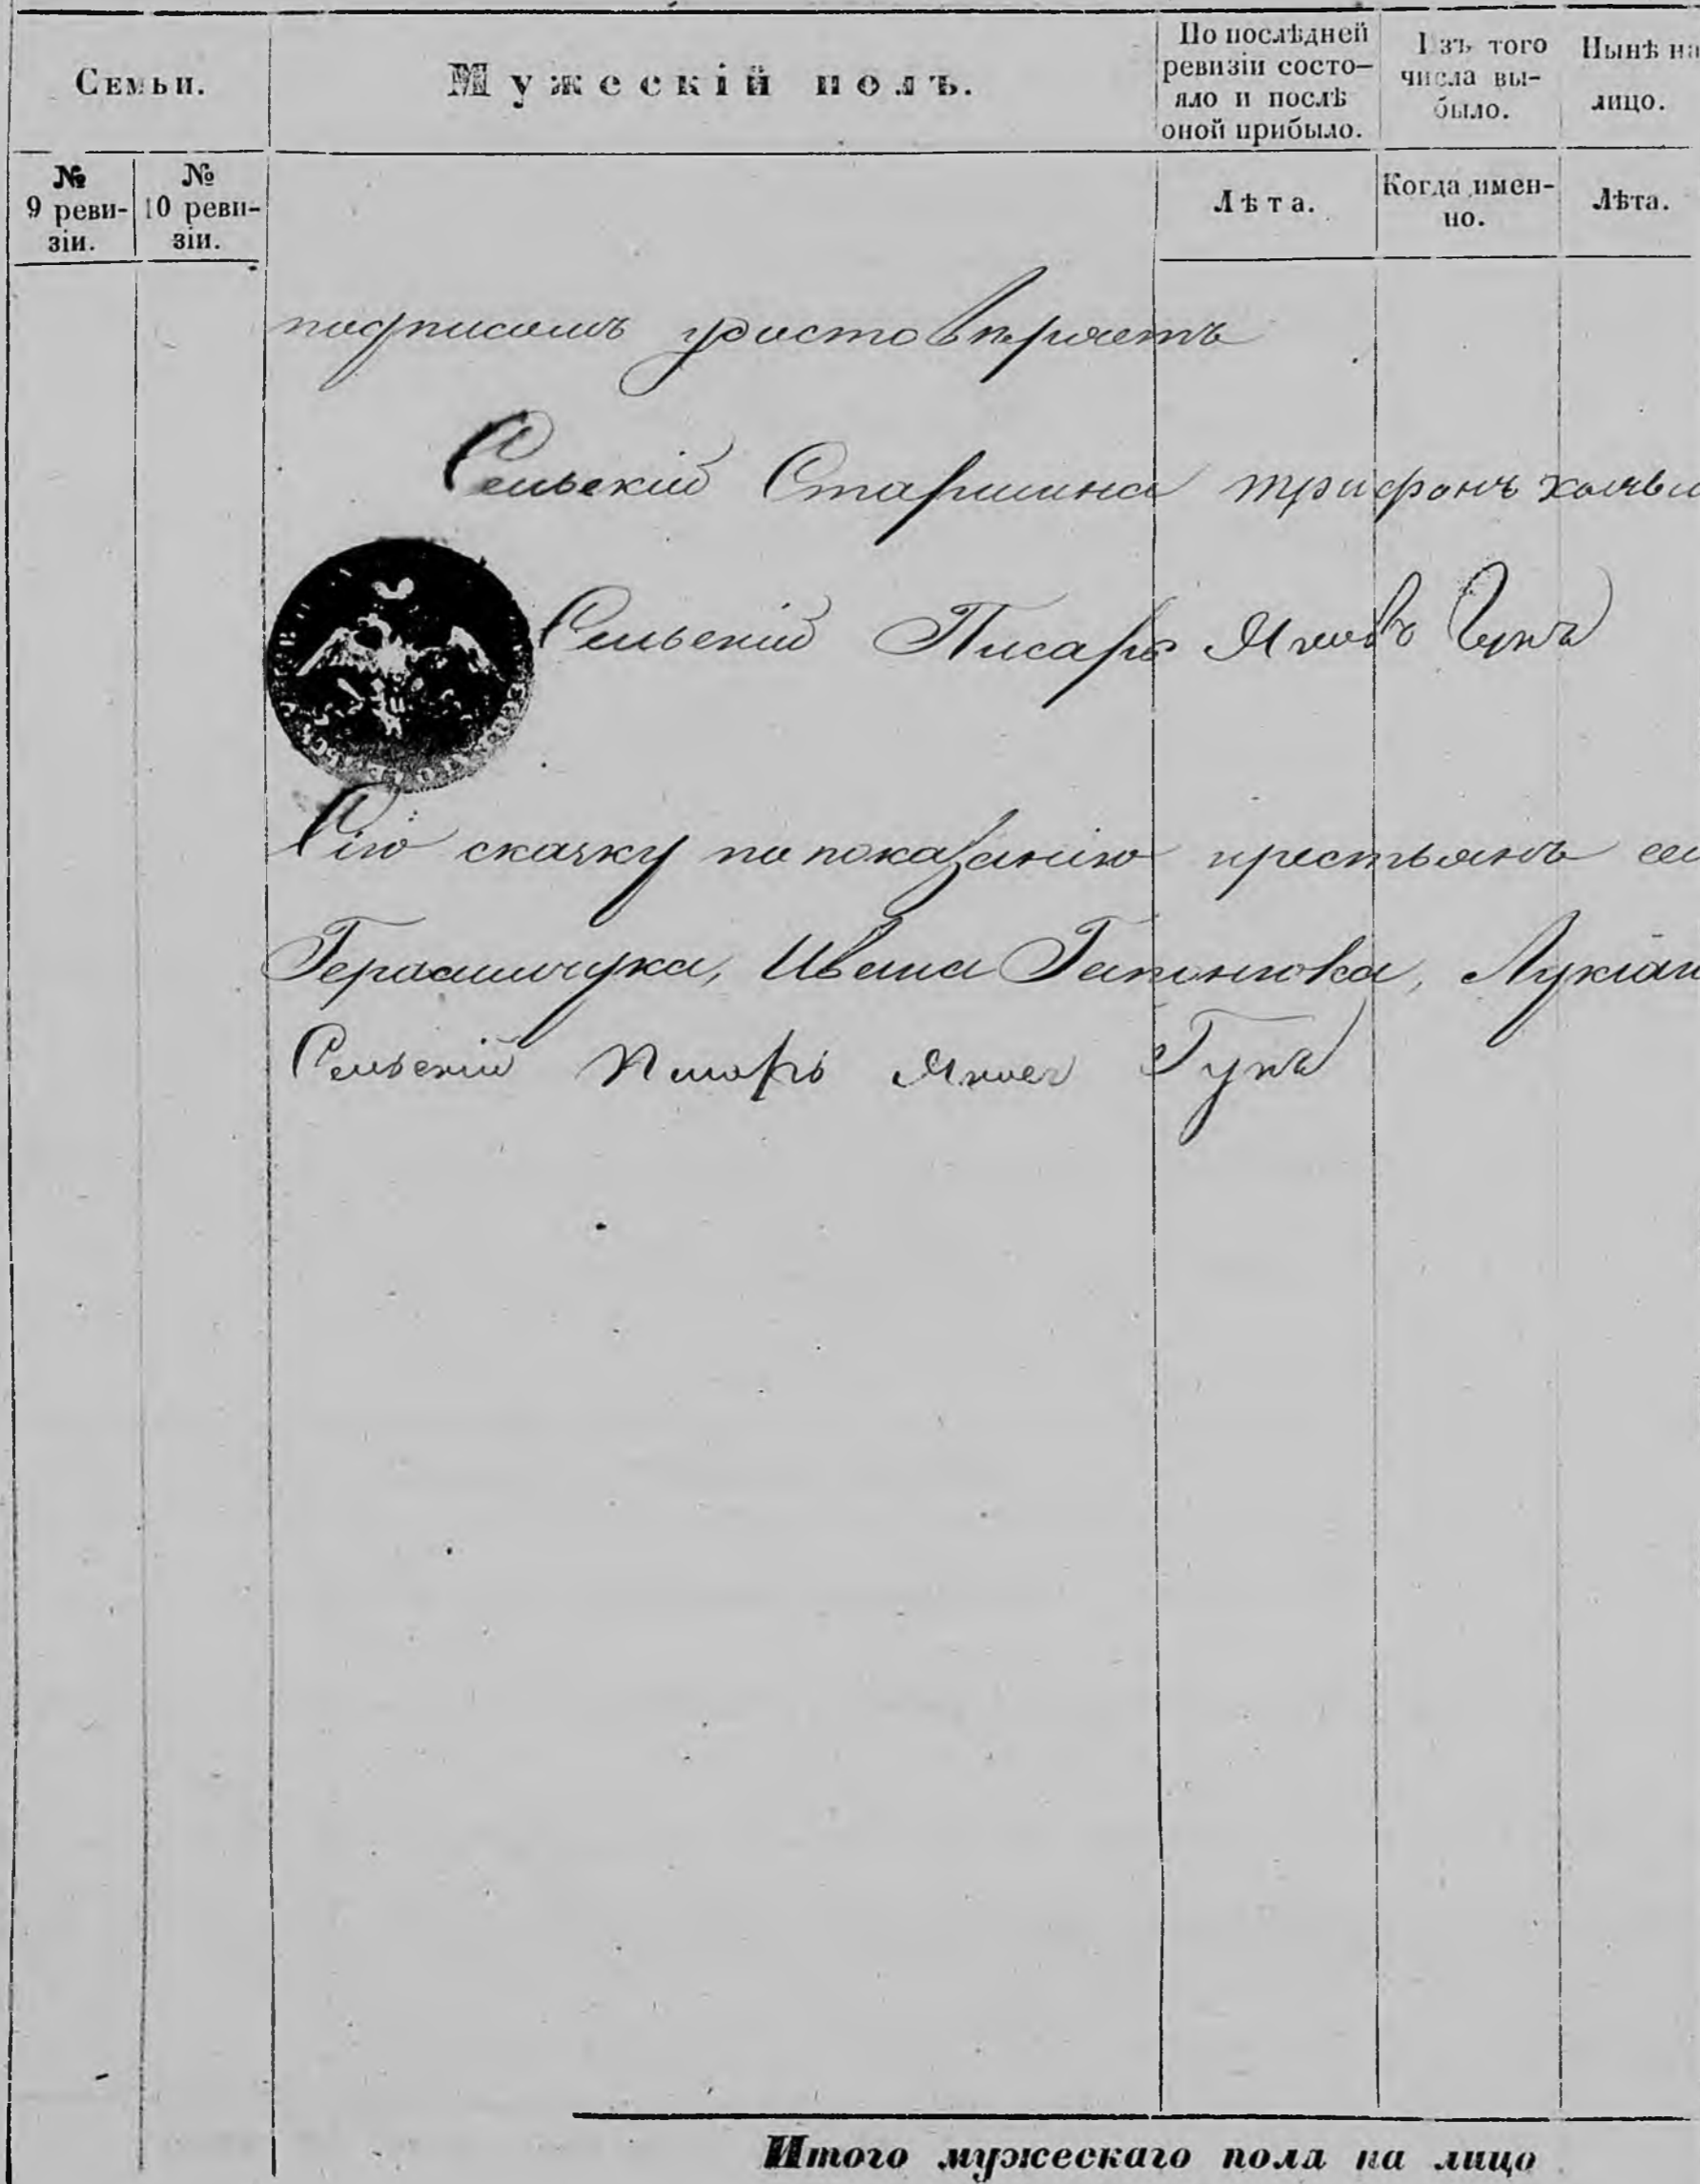 Семьи.
Мужескій полъ.
По послѣдней
ревизіи состо-
яло и послѣ
оной прибыло.
Изъ того
числа вы-
было.
Нынѣ на
лицо.
№
9 реви-
зіи.
№
10 реви-
зіи.
Лѣта.
Когда имен-
но.
Лѣта.
подписомъ удостовѣряетъ
Сельскій Старшина трифонъ
Сельскій Писарь Яковъ Гукъ
Сію сказку по показанію крестьянъ
Герасимчука, Ивана Гапонюка, Лукіан
Сельскій Писарь Яковъ Гукъ
Итого мужескаго пола на лицо